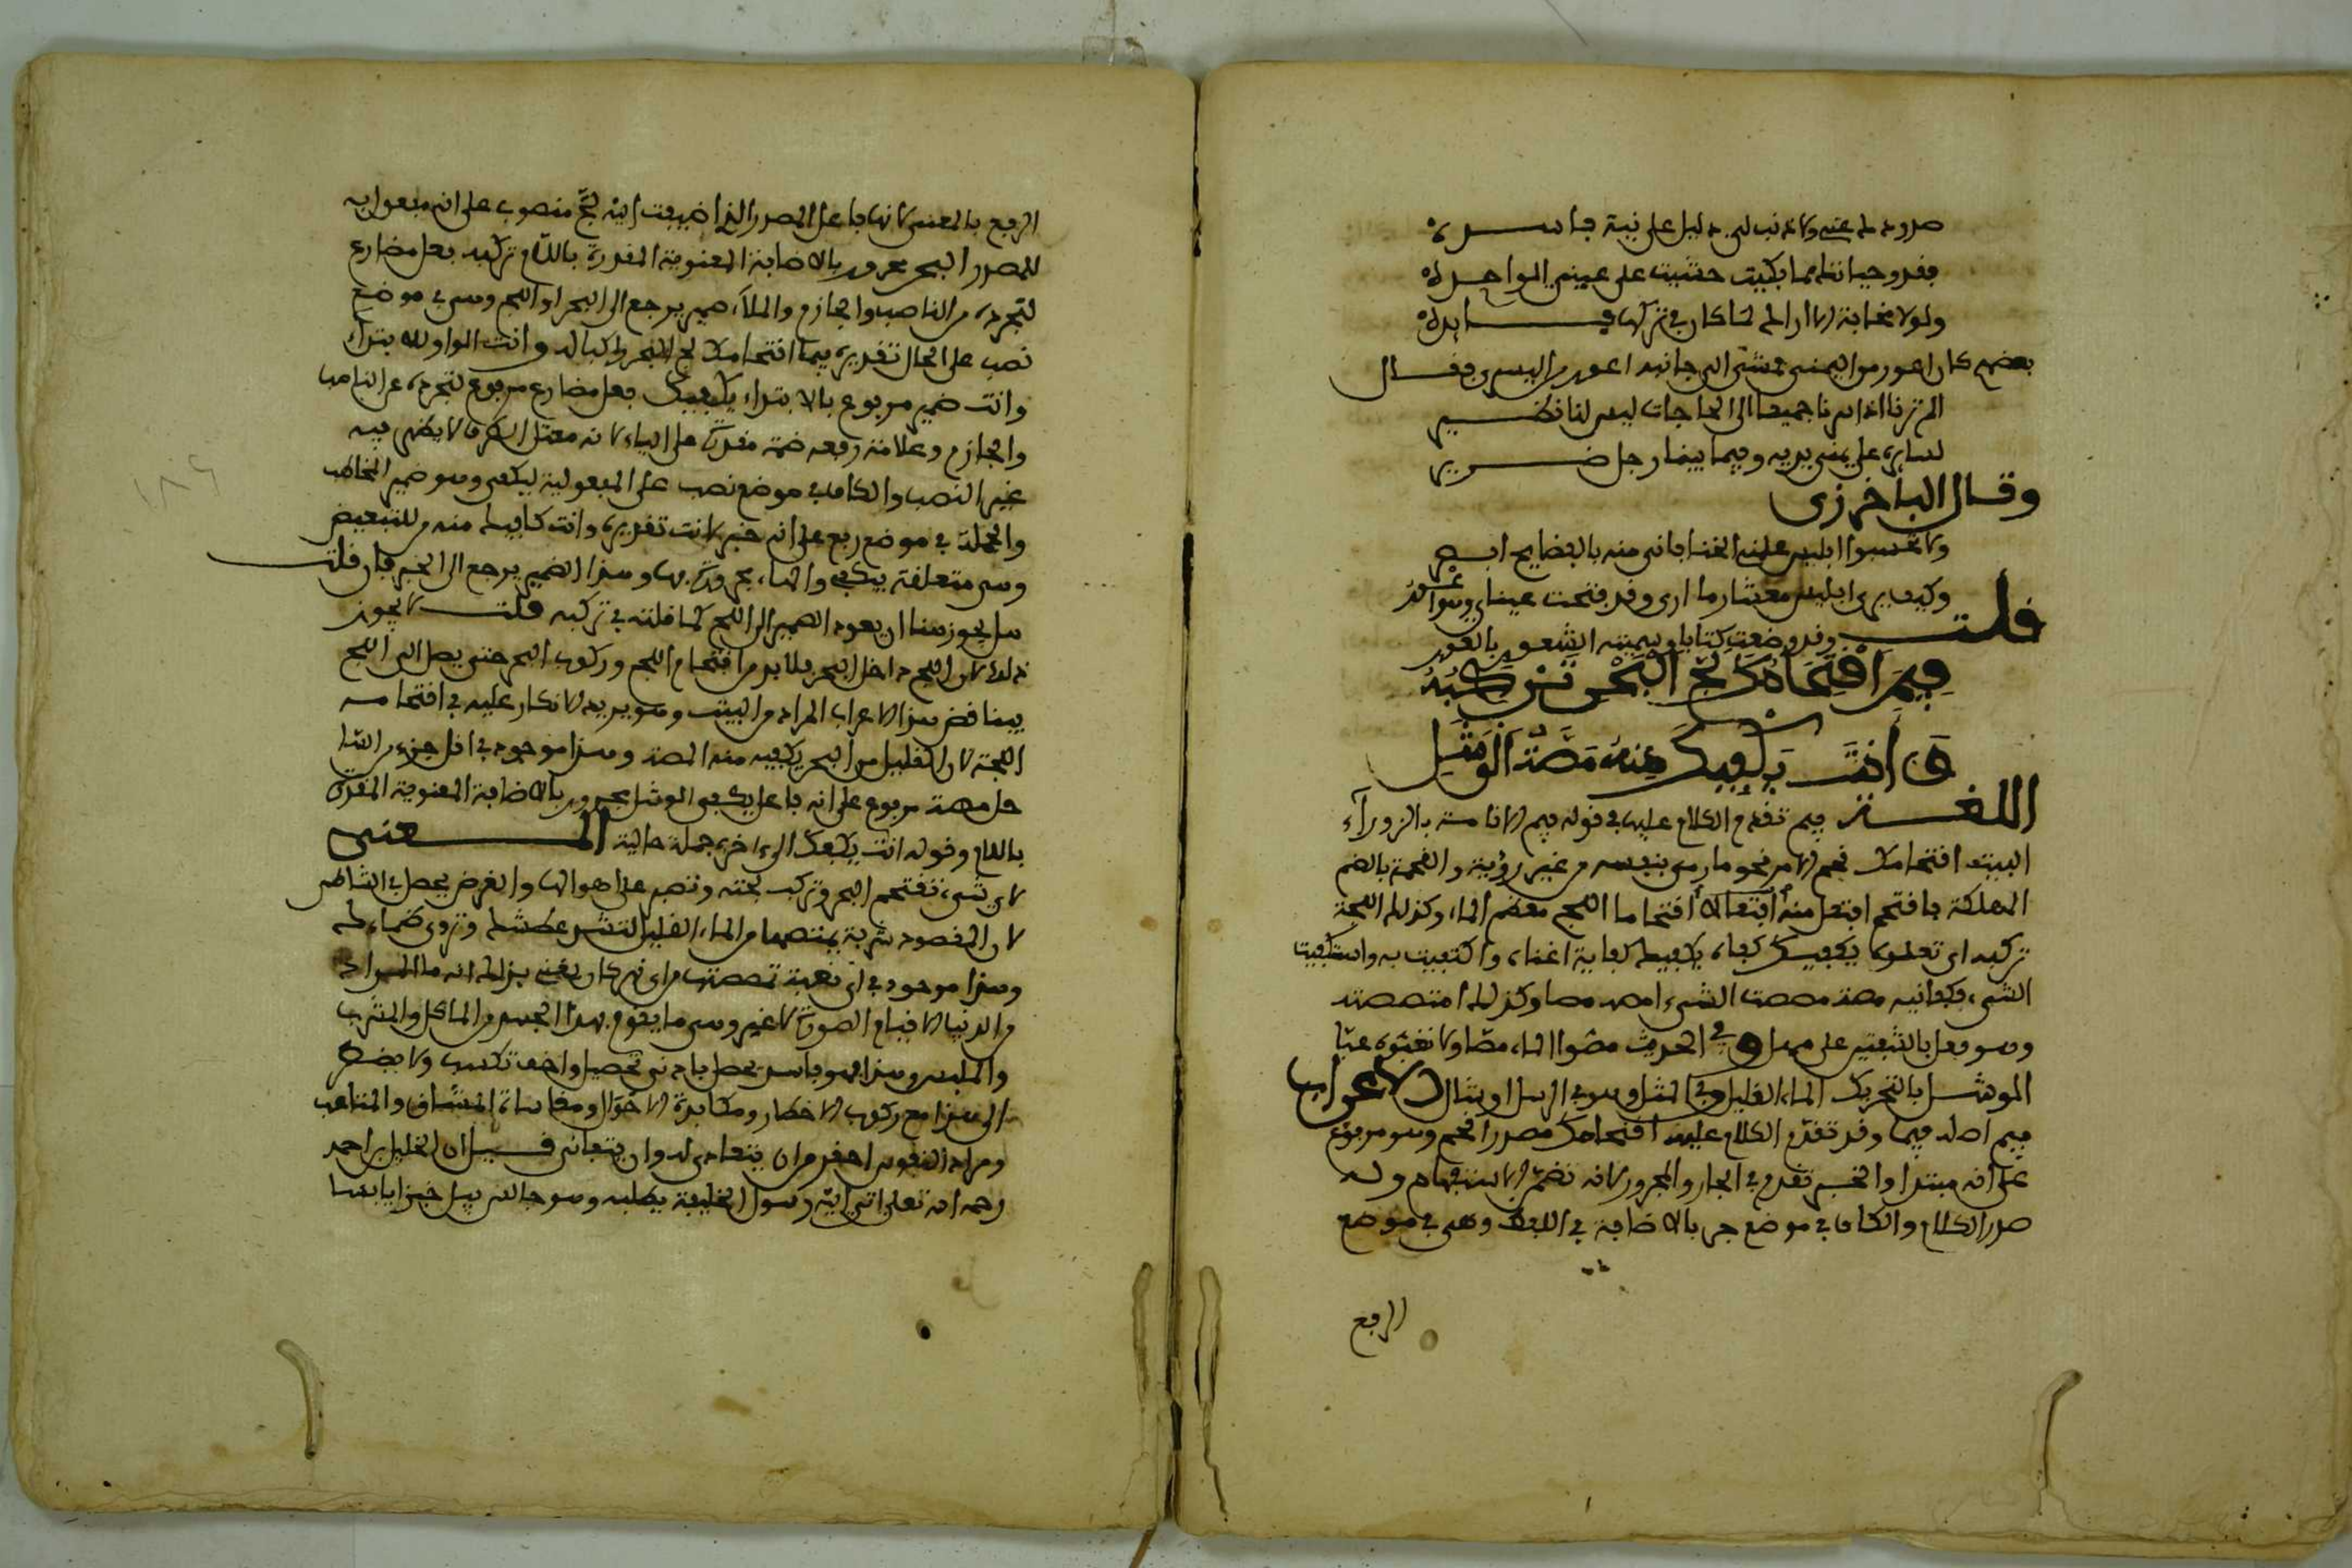 صدودك عني ولا ذنب لي دليل على نية فاسده
فقد وحياتك مما بكيت خشيت على عيني الواحده
ولولا مخافة ان لا اراك لما كان في تركها فايده
بعضهم كان اعور من اليمنى فمشى الى جانبه اعور من اليسرى فقال
الم ترنا اذا سرنا جميعا الى الحاجات ليس لنا نظير
نسايره على يمنى يديه وفيما بيننا رجل ضرير
وقال الباخرزي
ولا تحسبوا ابليس علمني الخنا فاني منه بالفضايح ابصر
وكيف يرى ابليس معشار ما ارى وقد فتحت عيناي وهو اعور
قلت وقد وضعت كتابا وسميته الشعور بالعور
فِيمَ اقْتِحَامُكَ لُجَّ الْبَحْرِ تَرْكَبُهُ
وَأَنْتَ يَكْفِيكَ مِنْهُ مَصَّةُ الْوَشَلِ
اللغة فيم تقدم الكلام عليها في قوله فيم الاقامة بالزوراء
البيت اقتحامك قحم في الامر قحوما رمى بنفسه من غير روية والقحمة بالضم
المهلكة فاقتحم افتعل منه افتعالا اقتحاما اللج معظم الماء وكذلك اللجة
تركبه اي تعلوه يكفيك كفاه يكفيه كفاية اغناه واكتفيت به واستكفيت
الشيء فكفانيه مصة مصصت الشيء امصه مصا وكذلك امتصصته
وهو فعل بالشفتين على مهل وفي الحديث مصوا الماء مصا ولا تعبوه عبا
الوشل بالتحريك الماء القليل وفي المثل وهل في الرمل اوشال الاعراب
فيم اصله فيما وقد تقدم الكلام عليه اقتحامك مصدر اقتحم وهو مرفوع
على انه مبتدا والخبر تقدم في الجار والمجرور لانه تضمن الاستفهام وله
صدر الكلام والكاف في موضع جر بالاضافة في اللفظ وهي في موضع
الرفع
الرفع بالمعنى لانها فاعل المصدر الذي اضيفت اليه لج منصوب على انه مفعول به
للمصدر البحر مجرور بالاضافة المعنوية المقدرة باللام تركبه فعل مضارع
لتجرده من الناصب والجازم والهاء ضمير يرجع الى البحر او اللج وهي في موضع
نصب على الحال تقديره فيما اقتحامك لج البحر راكبا له وانت الواو للابتداء
وانت ضمير مرفوع بالابتداء يكفيك فعل مضارع مرفوع لتجرده عن الناصب
والجازم وعلامة رفعه ضمة مقدرة على الياء لانه معتل الطرف لا يظهر فيه
غير النصب والكاف في موضع نصب على المفعولية ليكفي وهو ضمير المخاطب
والجملة في موضع رفع على انه خبر لانت تقديره وانت كافيك منه من للتبعيض
وهي متعلقة بيكفي والهاء مجرورة بها وهذا الضمير يرجع الى البحر فان قلت
هل يجوز هنا ان يعود الضمير الى اللج كما قلته في تركبه قلت لا يجوز
ذلك لان اللج داخل البحر فلا بد من اقتحام اللج وركوب البحر حتى يصل الى اللج
فيناقض هذا الاعراب المراد من البيت وهو يريد الانكار عليه في اقتحامه
اللجة لان القليل من البحر يكفيه منه المصة وهذا موجود في اقل جزء من الساحل
مصة مرفوع على انه فاعل يكفي الوشل مجرور بالاضافة المعنوية المقدرة
باللام وقوله انت يكفيك الى اخره جملة حالية المعنى
لاي شيء تقتحم البحر وتركب لجته وتصبر على اهوالها والغرض يحصل في الشاطئ
لان المقصود شربة يمتصها من الماء القليل لتسكن عطشك وتروي ظماءك
وهذا موجود في اي نغبة تمصصتها من اي نهر كان يعني بذلك انه ما المراد
من الدنيا الا قيام الصورة لا غير وهي ما يقوم بهذا الجسد من الماكل والمشرب
والملبس وهذا امر يحصل بادنى تحصيل واخف تكسب ولا يضطر
الى هذا مع ركوب الاخطار ومكابدة الاهوال ومقاساة المشاق والمتاعب
ومراد النفوس احقر من ان يتعادى له وان يتفانى قيل ان الخليل بن احمد
رحمه الله تعالى اتى اليه رسول الخليفة يطلبه وهو جالس يبل خبزا يابسا
١٨٩